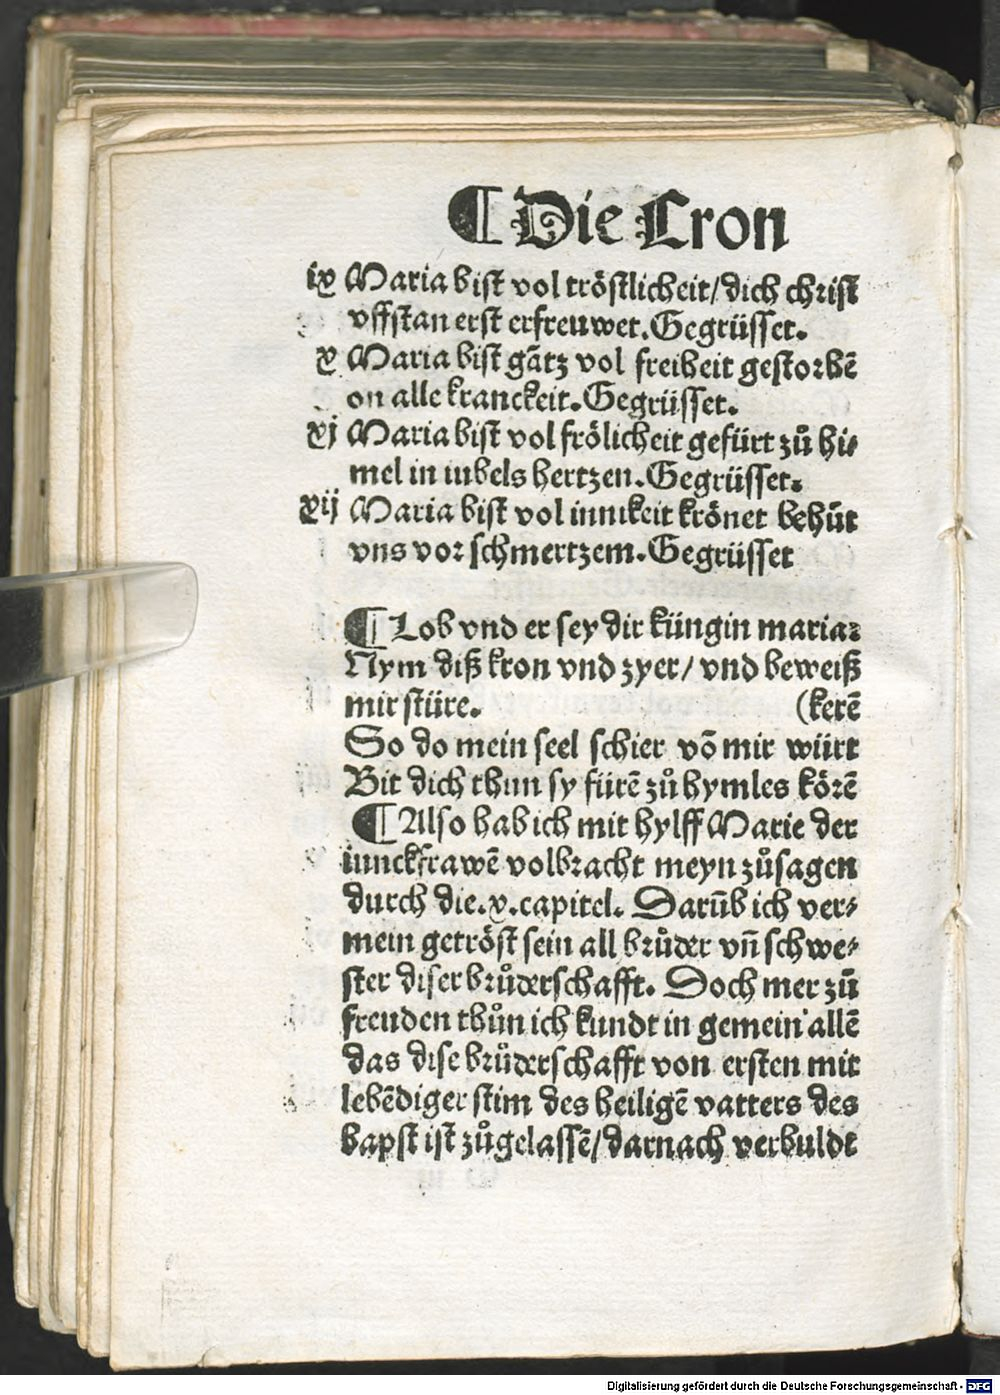 ¶ Die Cron
ix Maria bist vol tröstlicheit/ dich christ
vffstan erst erfreuwet. Gegrüsset.
x Maria bist gãtz vol freiheit gestorbẽ
on alle kranckeit. Gegrüsset.
xj Maria bist vol frölicheit gefürt zů hi-
mel in iubels hertzen. Gegrüsset.
xij Maria bist vol innikeit krönet behüt
vns vor schmertzem. Gegrüsset
¶ Lob vnd er sey dir küngin maria:
Nym diß kron vnd zyer/ vnd beweiß
mir stüre. (kerẽ
So do mein seel schier võ mir würt
Bit dich thun sy fürẽ zů hymles körẽ
¶ Also hab ich mit hylff Marie der
iunckfrawẽ volbracht meyn zůsagen
durch die .x. capitel. Darũb ich ver-
mein getröst sein all brůder vñ schwe-
ster diser brůderschafft. Doch mer zů
freuden thůn ich kundt in gemein allẽ
das dise brůderschafft von ersten mit
lebẽdiger stim des heiligẽ vatters des
bapst ist zůgelassẽ/ darnach verbuldt
Digitalisierung gefördert durch die Deutsche Forschungsgemeinschaft - DFG